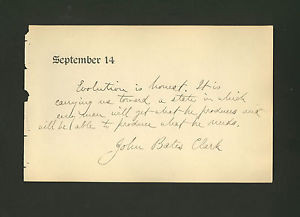 September 14
Evolution is honest. It is
carrying us toward a state in which
every man will get what he produces and
will be able to produce what he needs.
John Bates Clark